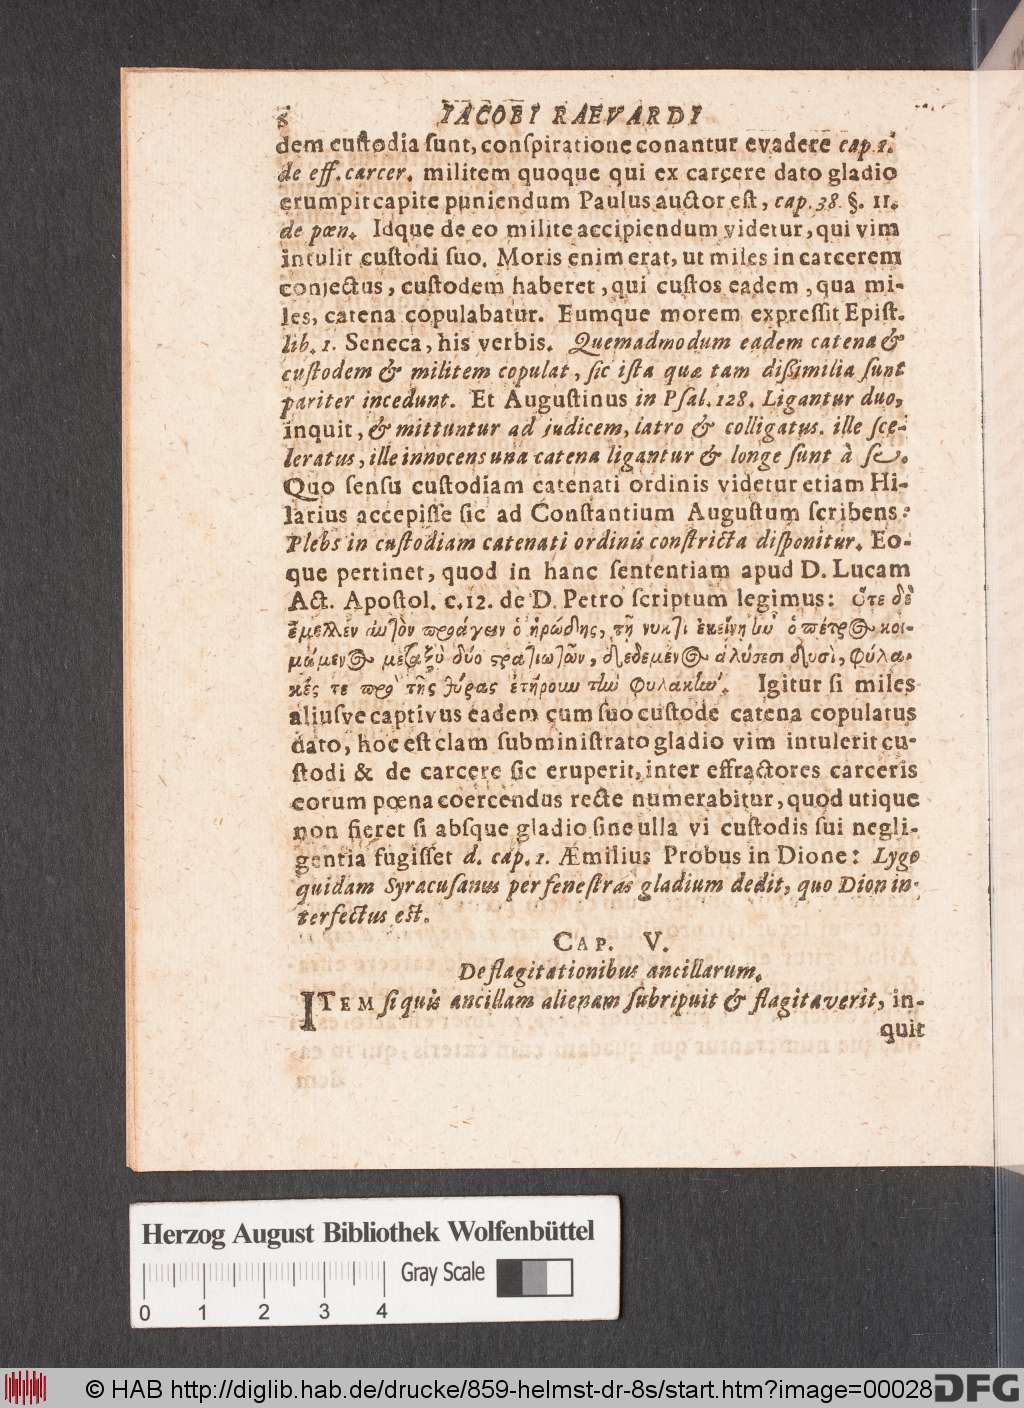 8 IACOBI RAEVARDI
dem cuſtodia ſunt, conſpiratione conantur evadere cap. 1.
de eff. carcer. militem quoque qui ex carcere dato gladio
erumpit capite puniendum Paulus auctor eſt, cap. 38. §. 11.
de pœn. Idque de eo milite accipiendum videtur, qui vim
intulit cuſtodi ſuo. Moris enim erat, ut miles in carcerem
conjectus, cuſtodem haberet, qui cuſtos eadem, qua mi-
les, catena copulabatur. Eumque morem expreſſit Epiſt.
lib. 1. Seneca, his verbis. Quemadmodum eadem catena &
cuſtodem & militem copulat, ſic iſta quæ tam diſſimilia ſunt
pariter incedunt. Et Auguſtinus in Pſal. 128. Ligantur duo,
inquit, & mittuntur ad judicem, latro & colligatus. ille ſce-
leratus, ille innocens una catena ligantur & longe ſunt à ſe.
Quo ſenſu cuſtodiam catenati ordinis videtur etiam Hi-
larius accepiſſe ſic ad Conſtantium Auguſtum ſcribens:
Plebs in cuſtodiam catenati ordinis conſtricta diſponitur. Eo-
que pertinet, quod in hanc ſententiam apud D. Lucam
Act. Apoſtol. c. 12. de D. Petro ſcriptum legimus: ὅτε δὲ
ἔμελλεν αὐτὸν προάγειν ὁ ἡρώδης, τῇ νυκτὶ ἐκείνῃ ἦν ὁ πέτρος κοι-
μώμενος μεταξὺ δύο στρατιωτῶν, δεδεμένος ἁλύσεσι δυσὶ, φύλα-
κές τε πρὸ τῆς θύρας ἐτήρουν τὴν φυλακήν. Igitur ſi miles
aliusve captivus eadem cum ſuo cuſtode catena copulatus
dato, hoc eſt clam ſubminiſtrato gladio vim intulerit cu-
ſtodi & de carcere ſic eruperit, inter effractores carceris
eorum pœna coercendus recte numerabitur, quod utique
non fieret ſi abſque gladio ſine ulla vi cuſtodis ſui negli-
gentia fugiſſet d. cap. 1. Æmilius Probus in Dione: Lygo
quidam Syracuſanus per feneſtras gladium dedit, quo Dion in-
terfectus eſt.
CAP. V.
De flagitationibus ancillarum.
ITEM ſi quis ancillam alienam ſubripuit & flagitaverit, in-
quit
Herzog August Bibliothek Wolfenbüttel
Gray Scale
0 1 2 3 4
© HAB http://diglib.hab.de/drucke/859-helmst-dr-8s/start.htm?image=00028
DFG